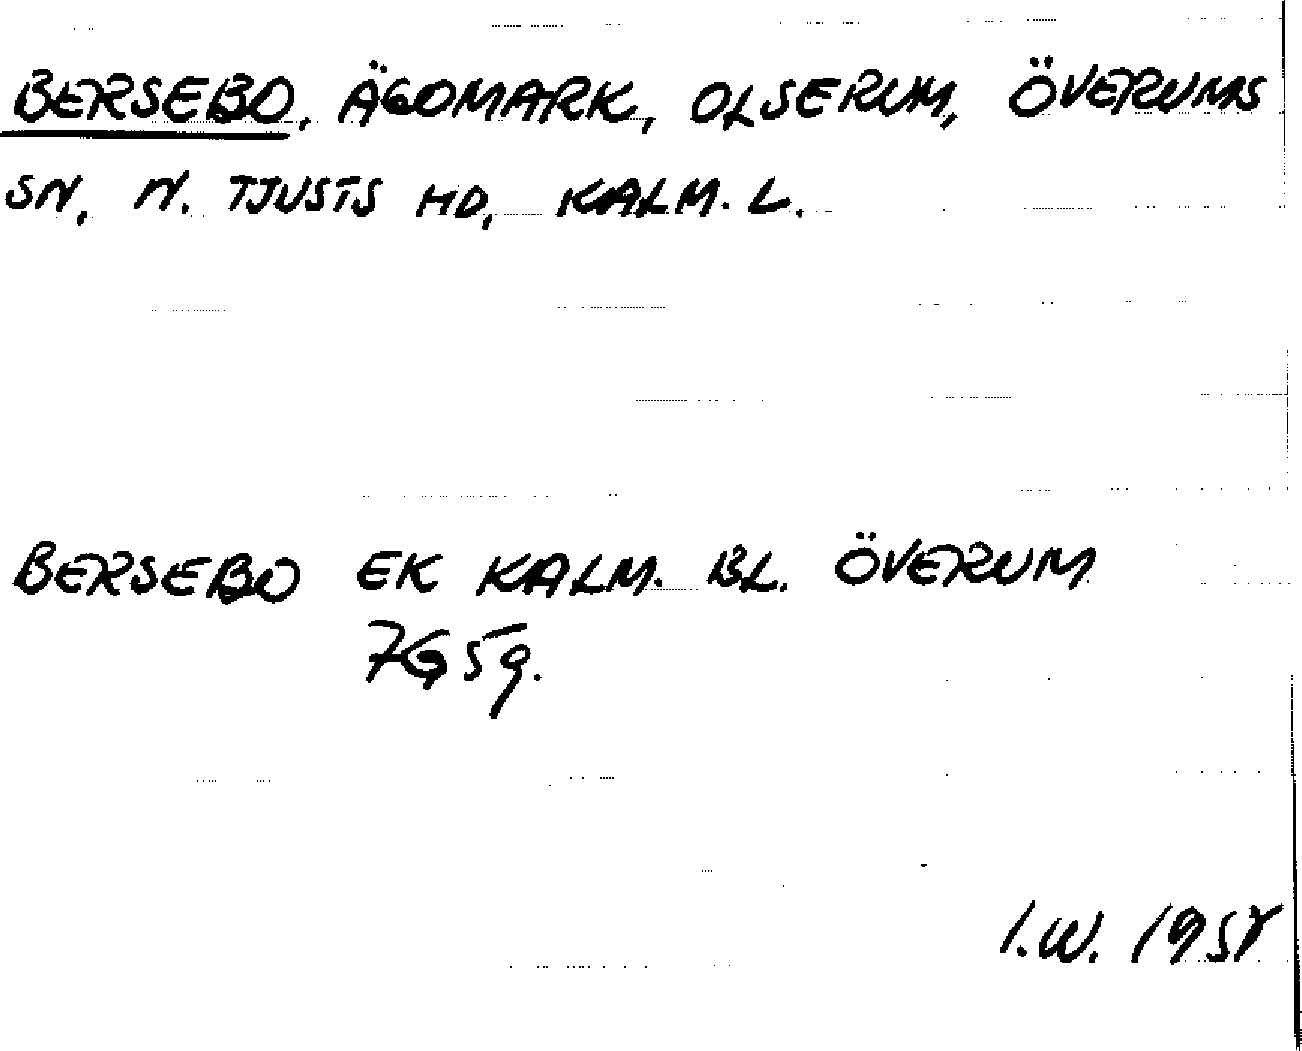 BERSEBO, ÄGOMARK, OLSERUM, ÖVERUMS
SN, N. TJUSTS HD, KALM. L.
BERSEBO EK KALM. BL. ÖVERUM
7G5g.
I.W. 1958